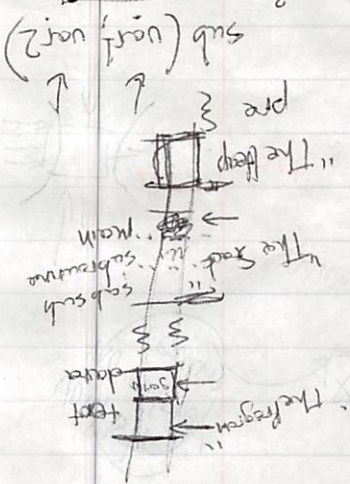 "The Program"
text
data
sub sub
"The Stack"
subroutine
main
"The Heap"
pre
sub (var1, var2)